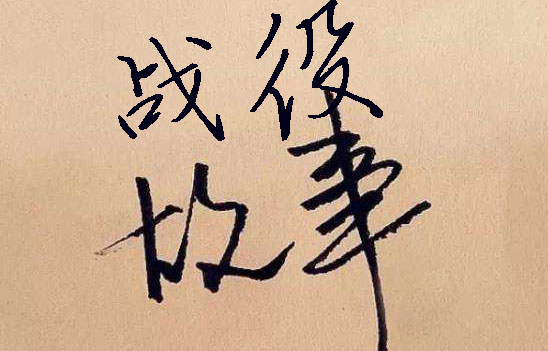 战役
故事